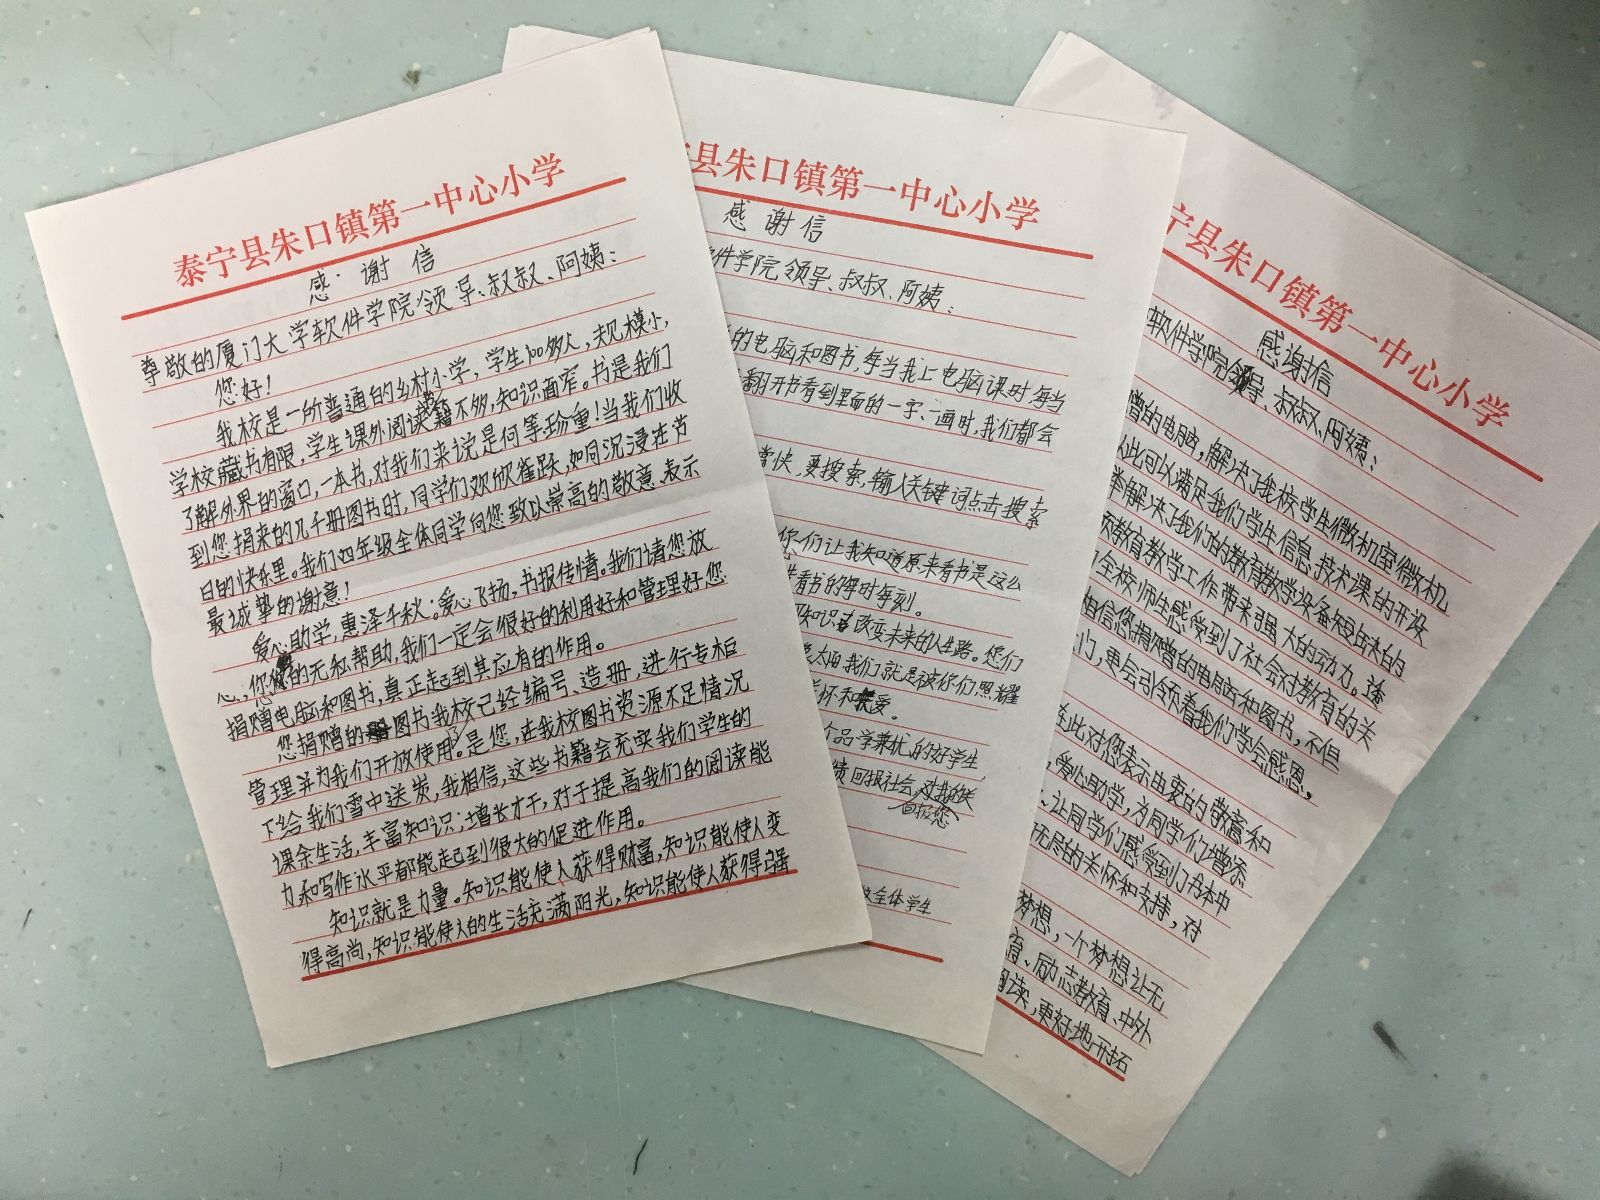 泰宁县朱口镇第一中心小学
感谢信
尊敬的厦门大学软件学院领导、叔叔、阿姨：
您好！
我校是一所普通的乡村小学，学生100多人，规模小，
学校藏书有限，学生课外阅读籍不够，知识面窄。书是我们
了解外界的窗口，一本书，对我们来说是何等珍重！当我们收
到您捐来的几千册图书时，同学们欢欣雀跃，如同沉浸在节
日的快乐里。我们四年级全体同学向您致以崇高的敬意，表示
最诚挚的谢意！
爱心助学，惠泽千秋；爱心飞扬，书报传情。我们请您放
心，您的无私帮助，我们一定会很好的利用好和管理好您
捐赠电脑和图书，真正起到其应有的作用。
您捐赠的图书我校已经编号、造册，进行专柜
管理并为我们开放使用了。是您，在我校图书资源不足情况
下给我们雪中送炭，我相信，这些书籍会充实我们学生的
课余生活，丰富知识；增长才干，对于提高我们的阅读能
力和写作水平都能起到很大的促进作用。
知识就是力量。知识能使人获得财富，知识能使人变
得高尚，知识能使人的生活充满阳光，知识能使人获得强
县朱口镇第一中心小学
感谢信
件学院领导、叔叔、阿姨：
的电脑和图书，每当我上电脑课时，每当
翻开书看到里面的一字、一画时，我们都会
常快，要搜索，输入关键词点击搜索
你们让我知道原来看书是这么
看书的每时每刻。
知识改变未来的人生路。您们
太阳，我们就是被你们照耀
怀和关爱。
个品学兼优的好学生，
绩回报社会，对我的关
回报您
全体学生
宁县朱口镇第一中心小学
感谢信
软件学院领导、叔叔、阿姨：
赠的电脑，解决了我校学生微机室微机
从此可以满足我们学生信息技术课的开设
举解决了我们的教育教学设备短缺的
教育教学工作带来强大的动力。这
全校师生感受到了社会对教育的关
相信您捐赠的电脑和图书，不但
门，更会引领着我们学会感恩，
在此对您表示由衷的敬意和
，爱心助学，为同学们增添
、让同学们感受到了书本中
无尽的关怀和支持，对
梦想，一个梦想让无
育、励志教育、中外
阅读，更好地开拓